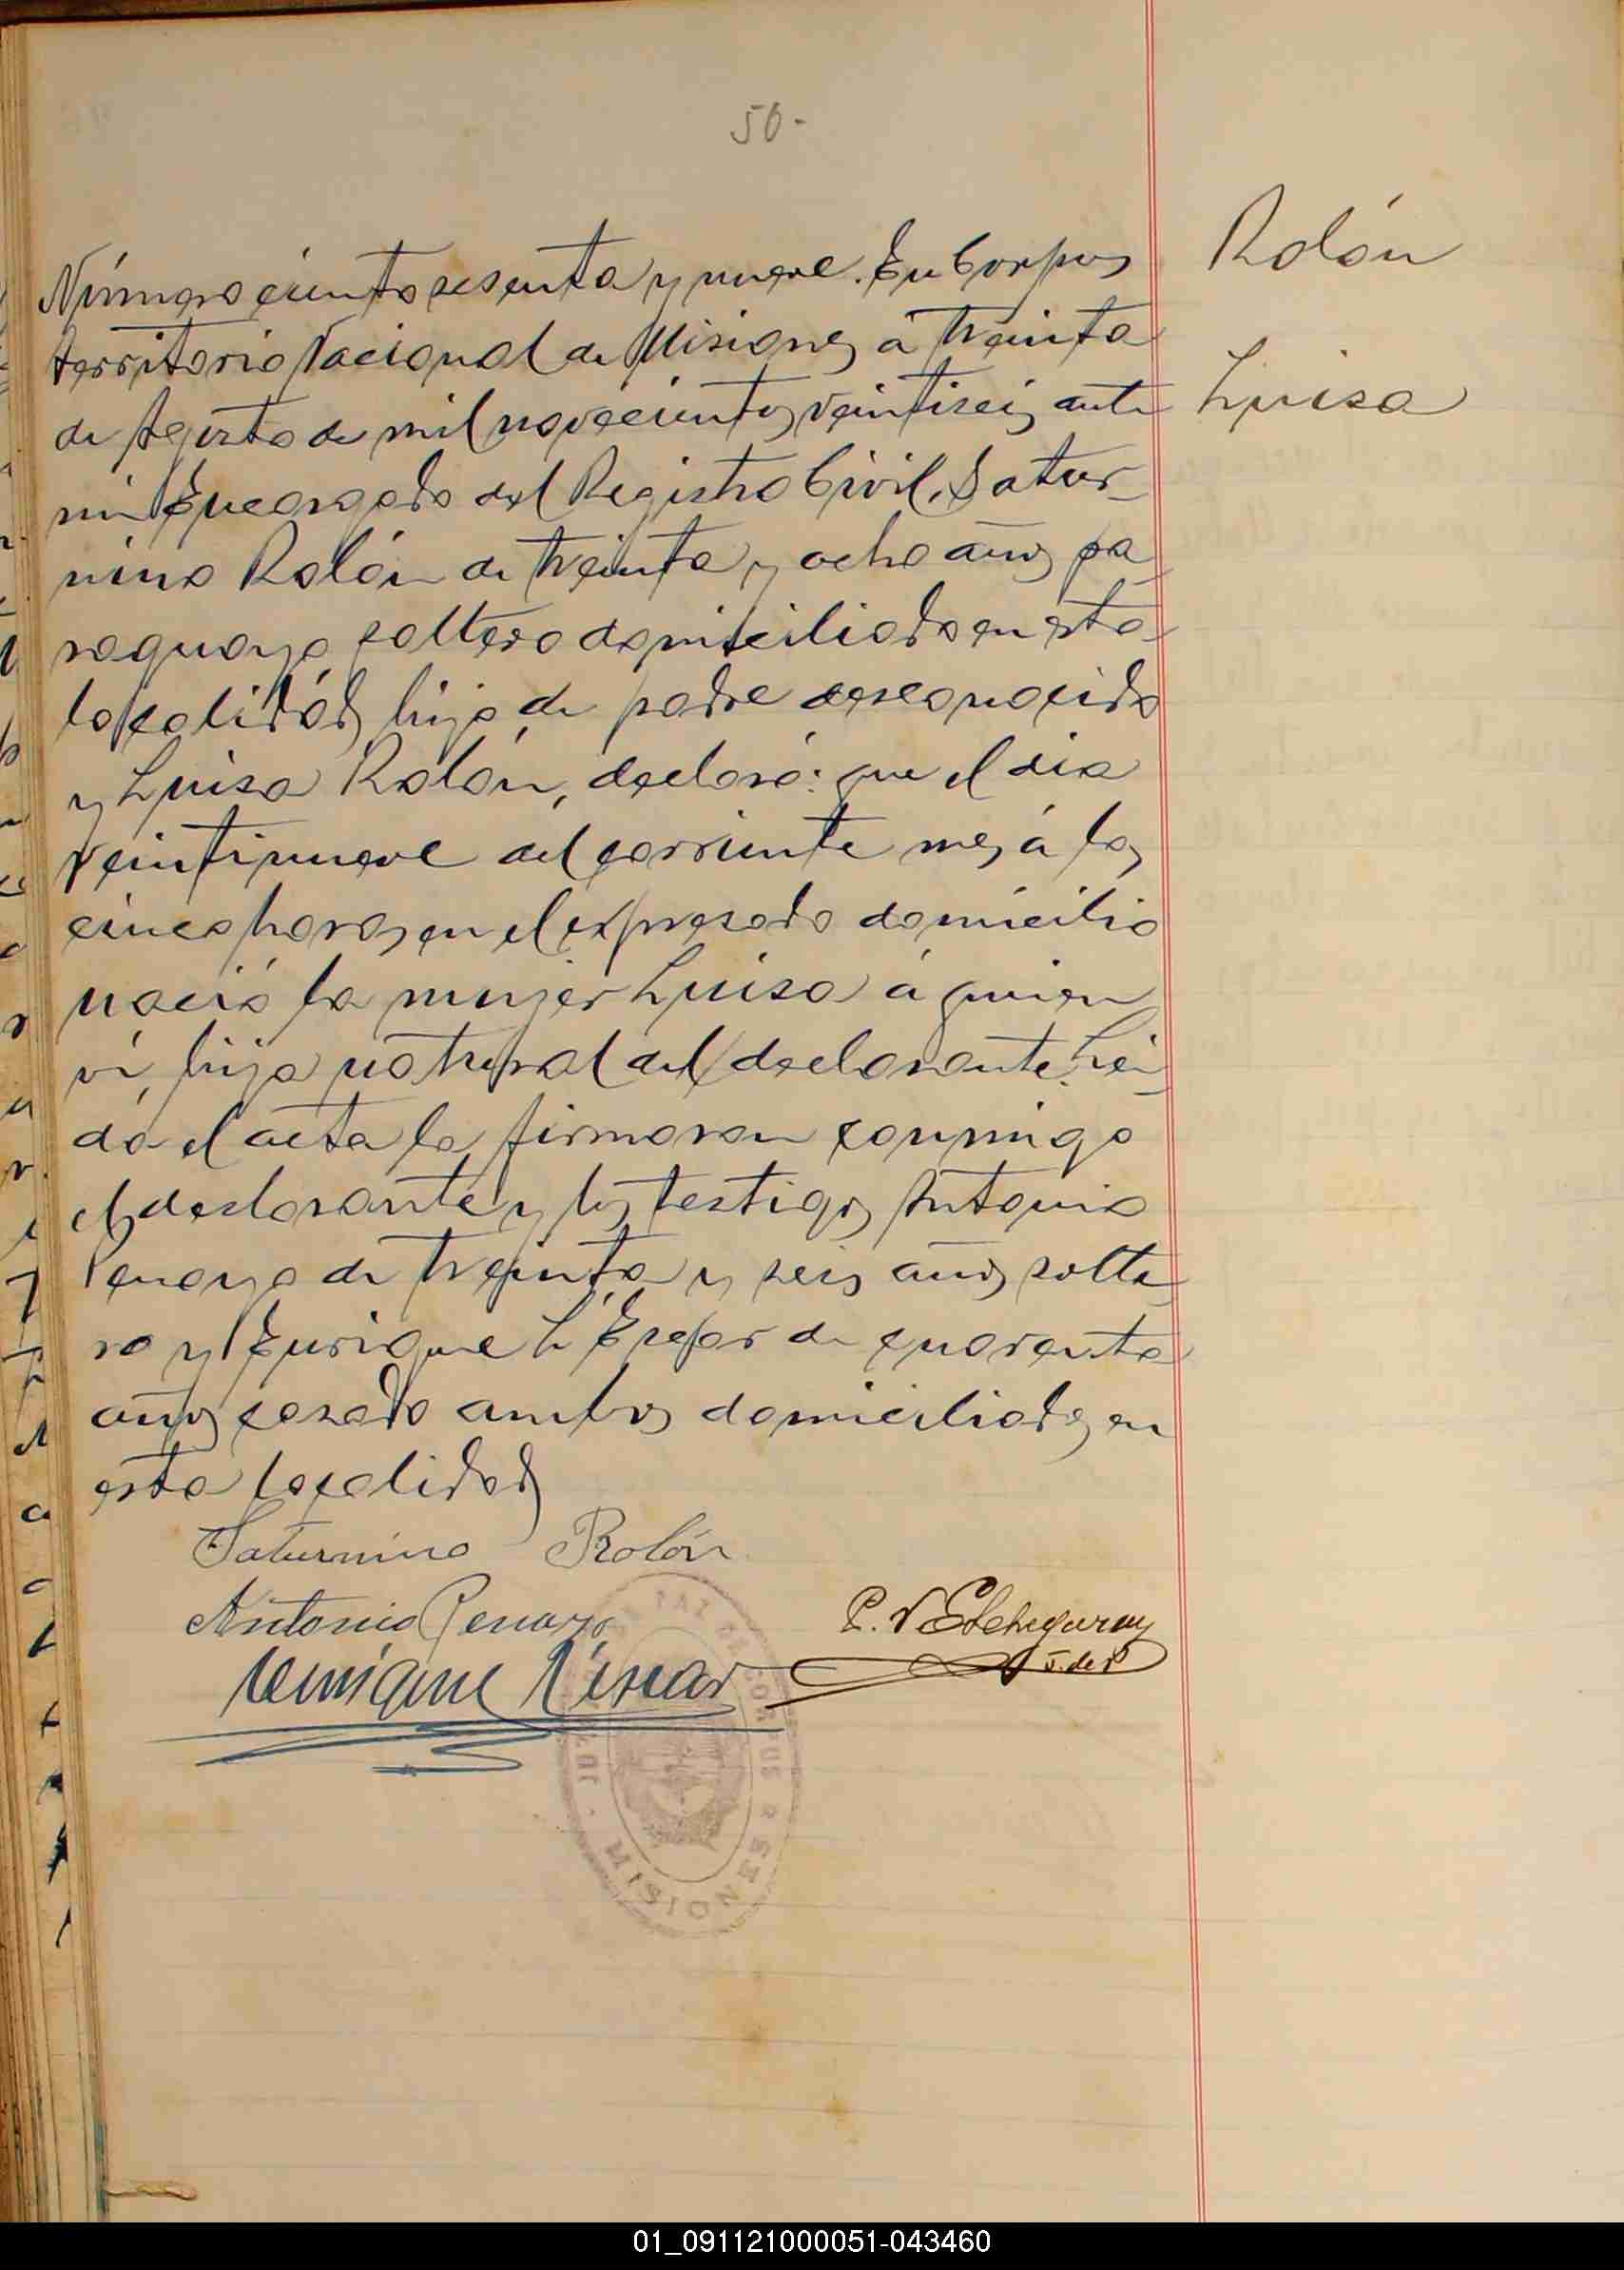 50-
Rolón
Luisa
Número ciento sesenta y nueve. En Corpus
territorio Nacional de Misiones á treinta
de Agosto de mil novecientos veintiseis ante
mi Encargado del Registro Civil, Satur-
nino Rolón de treinta y ocho años pa-
raguayo soltero domiciliado en esta
localidad, hijo de padre desconocido
y Luisa Rolón, declaró: que el dia
veintinueve del corriente mes á las
cinco horas en el expresado domicilio
nació la mujer Luisa á quien
ví, hija natural del declarante. Leí-
da el acta la firmaron conmigo
el declarante y los testigos Antonio
Penayo de treinta y seis años solte-
ro y Enrique de cuarenta
años casado ambos domiciliados en
esta localidad
Saturnino Rolón
Antonio Penayo
P. V. Etchegaray
J. de P
Enrique
JUZGADO DE PAZ DE CORPUS
MISIONES
01_091121000051-043460